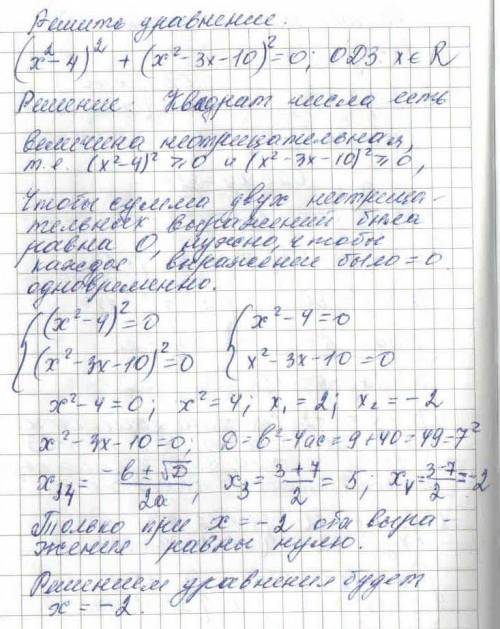 Решить уравнение:
(x² - 4)² + (x² - 3x - 10)² = 0; ОДЗ x ∈ R
Решение: Квадрат числа есть
величина неотрицательная,
т.е. (x² - 4)² ≥ 0 и (x² - 3x - 10)² ≥ 0,
Чтобы сумма двух неотрица-
тельных выражений была
равна 0, нужно, чтобы
каждое выражение было = 0
одновременно.
{ (x² - 4)² = 0 { x² - 4 = 0
(x² - 3x - 10)² = 0 x² - 3x - 10 = 0
x² - 4 = 0; x² = 4; x₁ = 2; x₂ = -2
x² - 3x - 10 = 0; D = b² - 4ac = 9 + 40 = 49 = 7²
x₃,₄ = (-b ± √D)/2a; x₃ = (3 + 7)/2 = 5; x₄ = (3 - 7)/2 = -2
Только при x = -2 оба выра-
жения равны нулю.
Решением уравнения будет
x = -2.